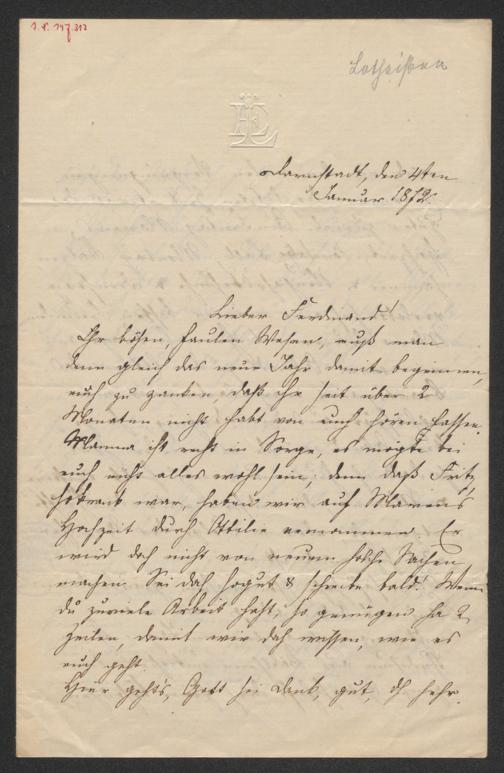 I.N. 147.312
Lotheißen
ÄL
Darmstadt, den 4ten
Januar 1872.
Lieber Ferdinand!
Ihr bösen, faulen Wesen, muß man
denn gleich das neue Jahr damit beginnen,
euch zu zanken daß ihr seit über 2
Monaten nicht habt von euch hören lassen.
Mamma ist recht in Sorge, es mögte bei
euch nicht alles wohl sein, denn daß Fritz
krank war, haben wir auf Mariens
Hochzeit durch Ottilie vernommen. Er
wird doch nicht von neuem solche Sachen
machen. Sei doch so gut & schreibe bald! Wenn
du zuviele Arbeit hast, so genügen ja 2
Zeilen, damit wir doch wissen, wie es
euch geht.
Hier geht's, Gott sei Dank, gut, sehr